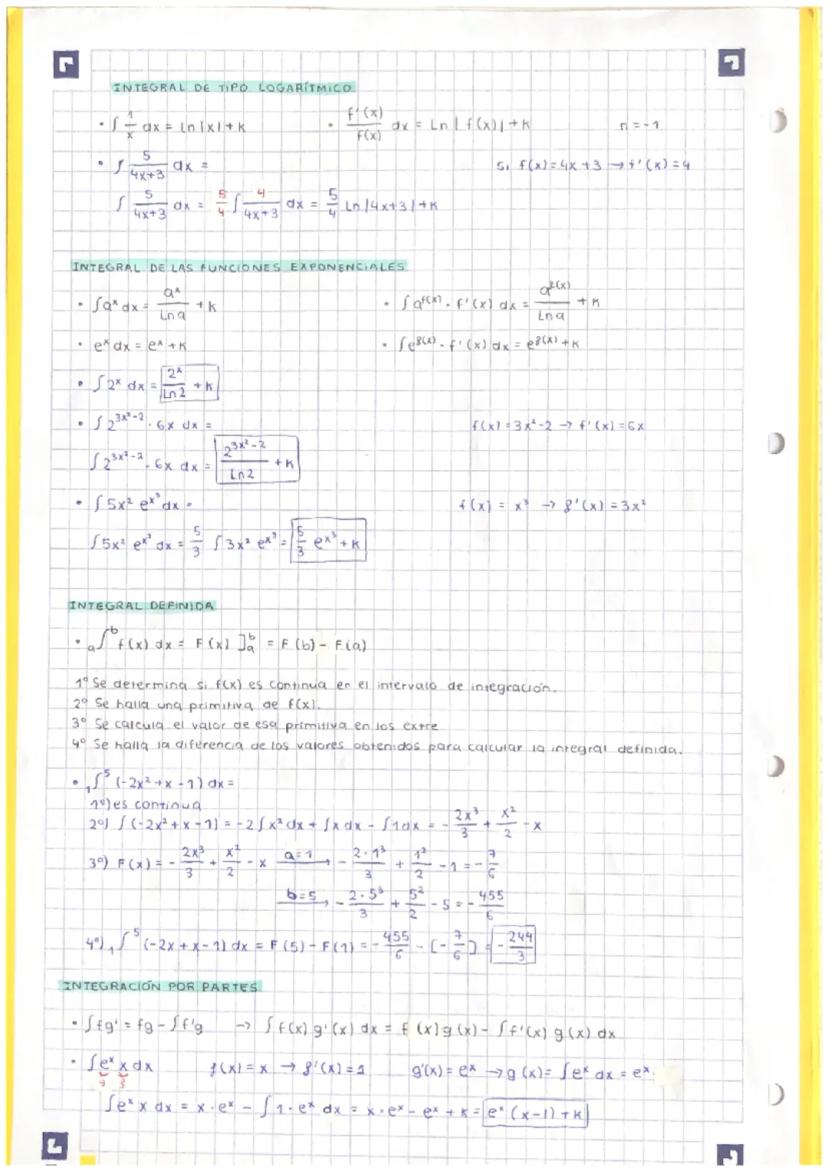 INTEGRAL DE TIPO LOGARÍTMICO
• ∫ 1/x dx = Ln|x| + K • f'(x)/f(x) dx = Ln|f(x)| + K n = -1
• ∫ 5/(4x+3) dx = Si f(x) = 4x + 3 → f'(x) = 4
∫ 5/(4x+3) dx = 5/4 ∫ 4/(4x+3) dx = 5/4 Ln|4x+3| + K
INTEGRAL DE LAS FUNCIONES EXPONENCIALES
• ∫a^x dx = a^x/Ln a + K • ∫a^f(x) · f'(x) dx = a^f(x)/Ln a + K
• e^x dx = e^x + K • ∫e^f(x) · f'(x) dx = e^f(x) + K
• ∫2^x dx = 2^x/Ln2 + K
• ∫2^(3x²-2) · 6x dx = f(x) = 3x²-2 → f'(x) = 6x
∫2^(3x²-2) · 6x dx = 2^(3x²-2)/Ln2 + K
• ∫5x² e^x³ dx = f(x) = x³ → f'(x) = 3x²
∫5x² e^x³ dx = 5/3 ∫3x² e^x³ = 5/3 e^x³ + K
INTEGRAL DEFINIDA
• a∫b f(x) dx = F(x) ]a b = F(b) - F(a)
1º Se determina si f(x) es continua en el intervalo de integración.
2º Se halla una primitiva de f(x).
3º Se calcula el valor de esa primitiva en los extre
4º Se halla la diferencia de los valores obtenidos para calcular la integral definida.
• 1∫5 (-2x² + x - 1) dx =
1º) es continua
2º) ∫(-2x² + x - 1) = -2∫x² dx + ∫x dx - ∫1dx = - 2x³/3 + x²/2 - x
3º) F(x) = - 2x³/3 + x²/2 - x a=1 → - 2·1³/3 + 1²/2 - 1 = - 7/6
b=5 → - 2·5³/3 + 5²/2 - 5 = - 455/6
4º) 1∫5 (-2x + x - 1) dx = F(5) - F(1) = - 455/6 - [- 7/6] = - 244/3
INTEGRACIÓN POR PARTES
• ∫fg' = fg - ∫f'g → ∫f(x) g'(x) dx = f(x) g(x) - ∫f'(x) g(x) dx
• ∫e^x x dx f(x) = x → f'(x) = 1 g'(x) = e^x → g(x) = ∫e^x dx = e^x
∫e^x x dx = x · e^x - ∫1 · e^x dx = x · e^x - e^x + K = e^x (x-1) + K